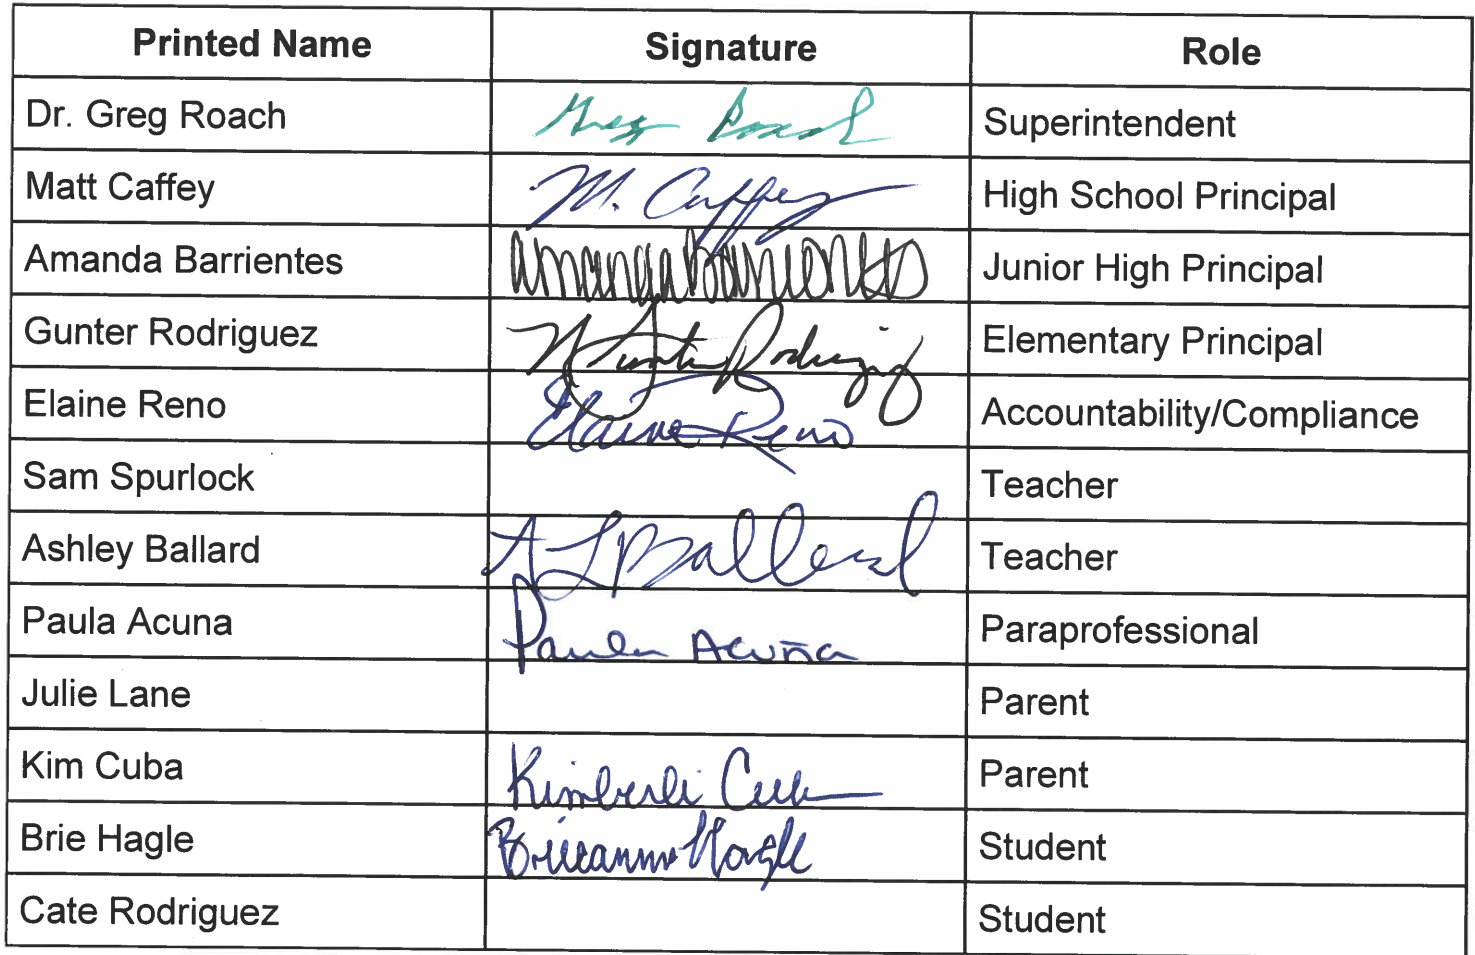 Printed Name Signature Role
Dr. Greg Roach Greg Roach Superintendent
Matt Caffey M. Caffey High School Principal
Amanda Barrientes amanda barrientes Junior High Principal
Gunter Rodriguez Gunter Rodriguez Elementary Principal
Elaine Reno Elaine Reno Accountability/Compliance
Sam Spurlock Teacher
Ashley Ballard A L Ballard Teacher
Paula Acuna Paula Acuña Paraprofessional
Julie Lane Parent
Kim Cuba Kimberli Cuba Parent
Brie Hagle Brieanna Hagle Student
Cate Rodriguez Student